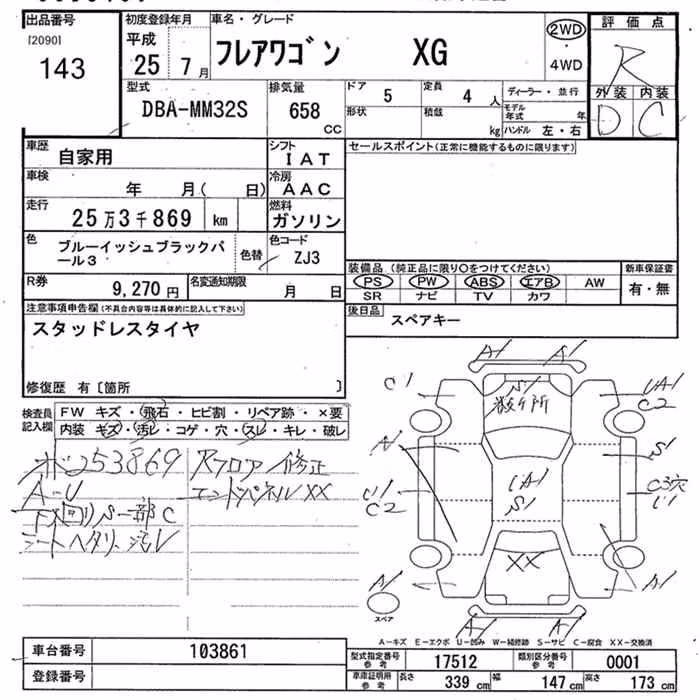 出品番号
[2090]
143
初度登録年月
平成
25 7月
車名・グレード
フレアワゴン XG
2WD
・
4WD
評価点
R
外装 内装
D C
型式
DBA-MM32S
排気量
658
CC
ドア 5
定員 4 人
形状
積載 kg
ディーラー・並行
モデル年式 年
ハンドル 左・右
車歴 自家用
シフト IAT
車検 年 月( 日)
冷房 AAC
走行 25万3千869 km
燃料 ガソリン
色 ブルーイッシュブラックパール3
色替
色コード ZJ3
R券 9,270円
名変通知期限 月 日
セールスポイント(正常に機能するものに限ります)
装備品(純正品に限り○をつけてください)
PS PW ABS エアB AW
SR ナビ TV カワ
新車保証書
有・無
後日品 スペアキー
注意事項申告欄(不具合内容等は具体的に記入して下さい)
スタッドレスタイヤ
修復歴 有〔箇所 〕
検査員記入欄
FW キズ・飛石・ヒビ割・リペア跡・×要
内装 キズ・汚レ・コゲ・穴・スレ・キレ・破レ
253869
A-U
下回りS一部C
シートヘタリ・汚レ
Rフロア修正
エンドパネルXX
A1 A1
C1
S1
UA1
C2
A1
S1
U1
C2
UA1
S1
C3穴
U1
XX
A1
A1
A1 A1
スペア
A-キズ E-エクボ U-凹み W-補修跡 S-サビ C-腐食 XX-交換済
車台番号 103861
登録番号
型式指定番号 参考 17512
類別区分番号 参考 0001
車庫証明用 参考 長さ 339 cm 幅 147 cm 高さ 173 cm